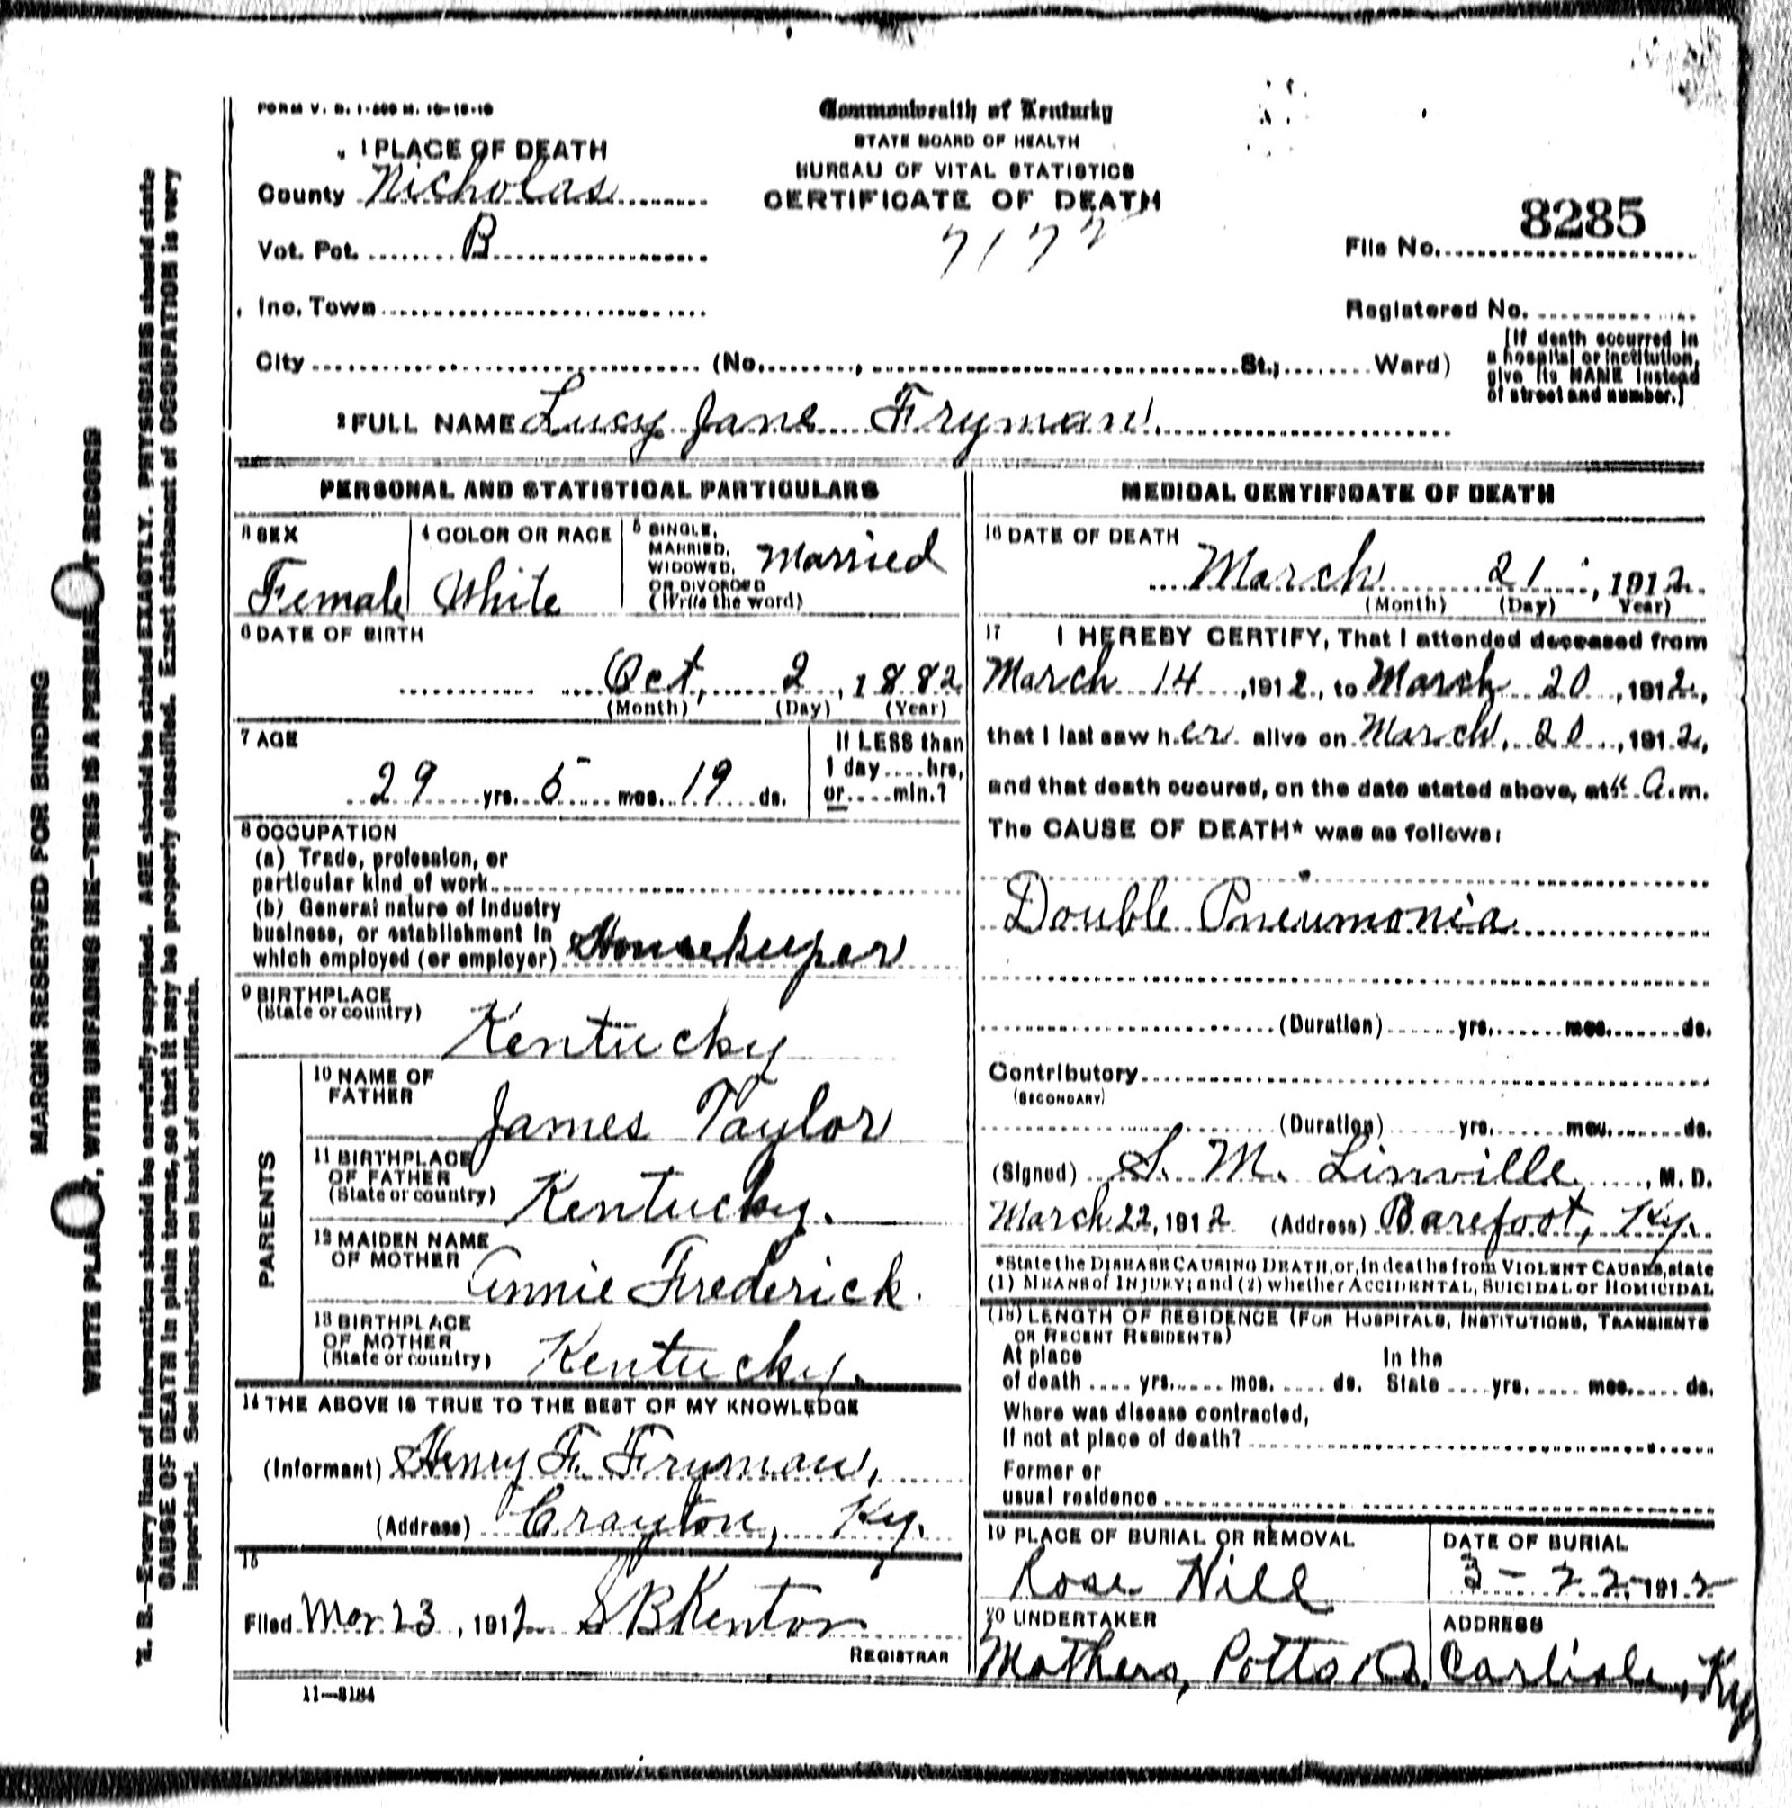 FORM V. S. 1-500 M. 10-18-10
Commonwealth of Kentucky
STATE BOARD OF HEALTH
BUREAU OF VITAL STATISTICS
CERTIFICATE OF DEATH
1 PLACE OF DEATH
County Nicholas
Vot. Pct. B
7177
File No. 8285
Inc. Town
Registered No.
City (No. , St.; Ward)
[If death occurred in
a hospital or institution,
give its NAME instead
of street and number.]
2 FULL NAME Lucy Jane Fryman.
PERSONAL AND STATISTICAL PARTICULARS
3 SEX
Female
4 COLOR OR RACE
White
5 SINGLE,
MARRIED,
WIDOWED,
OR DIVORCED
(Write the word)
Married
6 DATE OF BIRTH
Oct, 2, 1882
(Month) (Day) (Year)
7 AGE
29 yrs. 5 mos. 19 ds.
If LESS than
1 day....hrs,
or....min.?
8 OCCUPATION
(a) Trade, profession, or
particular kind of work
(b) General nature of Industry
business, or establishment in
which employed (or employer) Housekeeper
9 BIRTHPLACE
(State or country)
Kentucky
PARENTS
10 NAME OF
FATHER
James Taylor
11 BIRTHPLACE
OF FATHER
(State or country)
Kentucky.
12 MAIDEN NAME
OF MOTHER
Annie Frederick.
13 BIRTHPLACE
OF MOTHER
(State or country)
Kentucky.
14 THE ABOVE IS TRUE TO THE BEST OF MY KNOWLEDGE
(Informant) Henry F. Fryman,
(Address) Crayton, Ky.
15
Filed Mar 23, 1912 S B Kenton
REGISTRAR
11-3184
MEDICAL CERTIFICATE OF DEATH
16 DATE OF DEATH
March 21, 1912.
(Month) (Day) (Year)
17 I HEREBY CERTIFY, That I attended deceased from
March 14, 1912, to March 20, 1912,
that I last saw her alive on March, 20, 1912,
and that death occured, on the date stated above, at A.m.
The CAUSE OF DEATH* was as follows:
Double Pneumonia
(Duration) yrs. mos. ds.
Contributory
(SECONDARY)
(Duration) yrs. mos. ds.
(Signed) S. M. Linville, M. D.
March 22, 1912 (Address) Barefoot, Ky.
*State the DISEASE CAUSING DEATH, or, in deaths from VIOLENT CAUSES, state
(1) MEANS of INJURY; and (2) whether ACCIDENTAL, SUICIDAL or HOMICIDAL
(18) LENGTH OF RESIDENCE (FOR HOSPITALS, INSTITUTIONS, TRANSIENTS
OR RECENT RESIDENTS)
At place In the
of death .... yrs. mos. ds. State .... yrs. mos. ds.
Where was disease contracted,
If not at place of death?
Former or
usual residence
19 PLACE OF BURIAL OR REMOVAL
Rose Hill
DATE OF BURIAL
3-22-1912
20 UNDERTAKER
Mathers, Potts &
ADDRESS
Carlisle, Ky
MARGIN RESERVED FOR BINDING
WRITE PLAINLY, WITH UNFADING INK—THIS IS A PERMANENT RECORD
N. B.—Every item of information should be carefully supplied. AGE should be stated EXACTLY. PHYSICIANS should state
CAUSE OF DEATH in plain terms, so that it may be properly classified. Exact statement of OCCUPATION is very
important. See instructions on back of certificate.